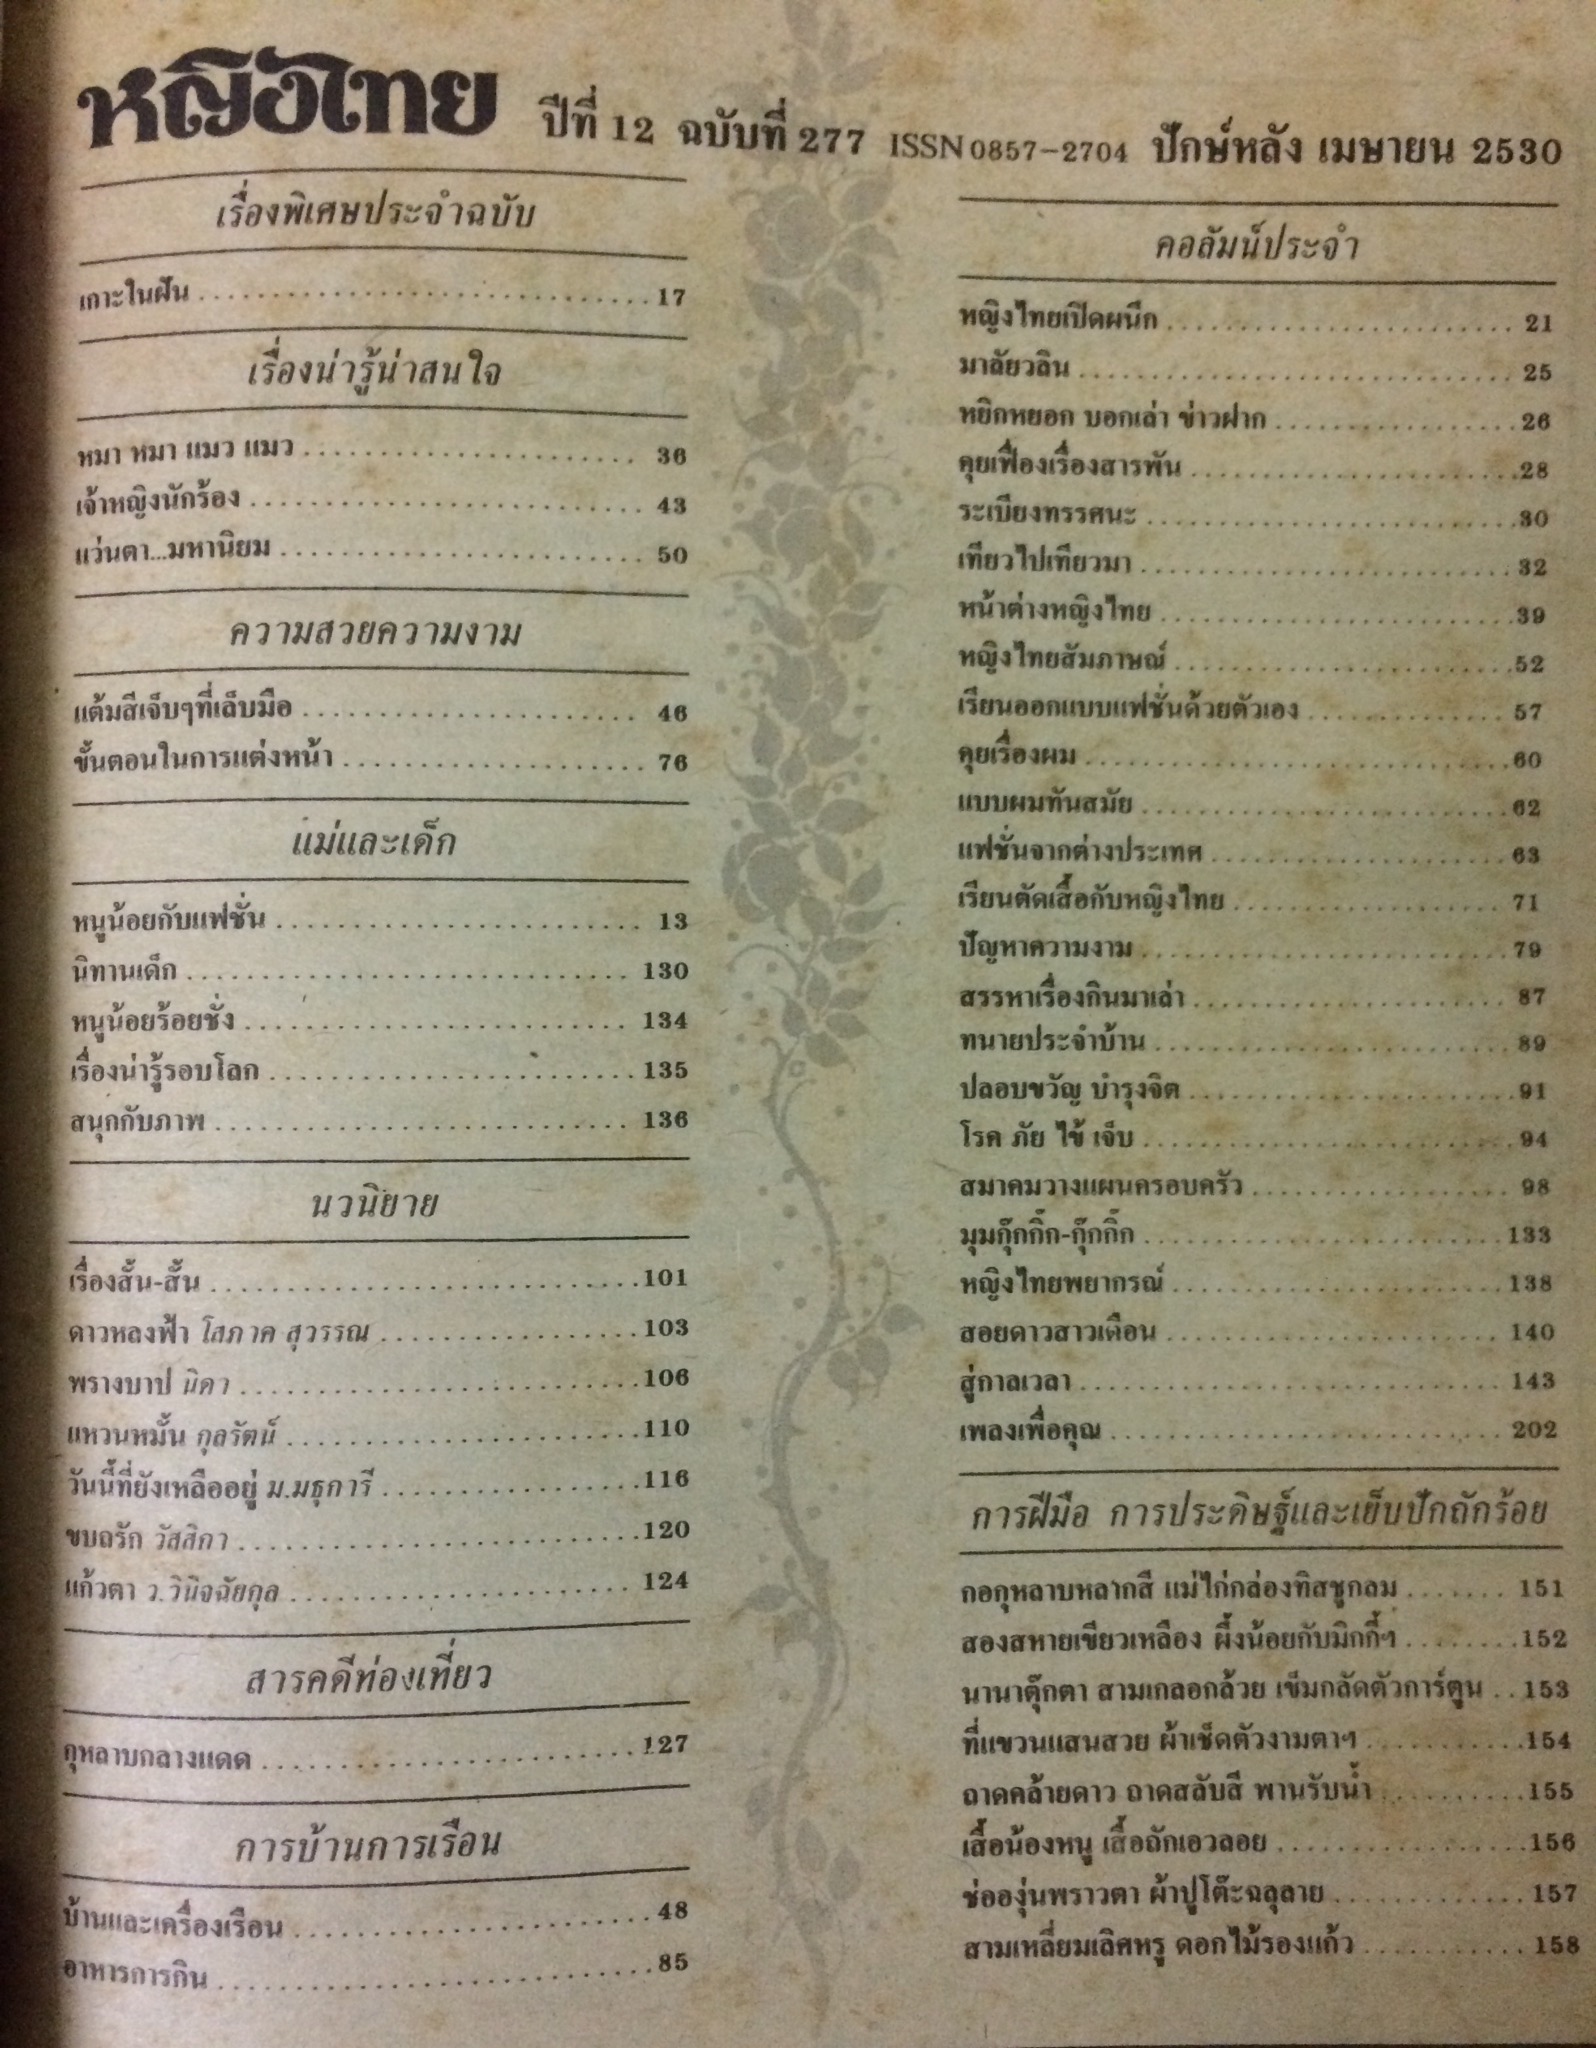 หญิงไทย ปีที่ 12 ฉบับที่ 277 ISSN 0857-2704 ปักษ์หลัง เมษายน 2530
เรื่องพิเศษประจำฉบับ
เกาะในฝัน 17
เรื่องน่ารู้น่าสนใจ
หมา หมา แมว แมว 36
เจ้าหญิงนักร้อง 43
แว่นตา...มหานิยม 50
ความสวยความงาม
แต้มสีเจ็บๆที่เล็บมือ 46
ขั้นตอนในการแต่งหน้า 76
แม่และเด็ก
หนูน้อยกับแฟชั่น 13
นิทานเด็ก 130
หนูน้อยร้อยชั่ง 134
เรื่องน่ารู้รอบโลก 135
สนุกกับภาพ 136
นวนิยาย
เรื่องสั้น-สั้น 101
ดาวหลงฟ้า โสภาค สุวรรณ 103
พรางบาป นิดา 106
แหวนหมั้น กุลรัตน์ 110
วันนี้ที่ยังเหลืออยู่ ม.มธุการี 116
ขบถรัก วัสสิกา 120
แก้วตา ว.วินิจฉัยกุล 124
สารคดีท่องเที่ยว
กุหลาบกลางแดด 127
การบ้านการเรือน
บ้านและเครื่องเรือน 48
อาหารการกิน 85
คอลัมน์ประจำ
หญิงไทยเปิดผนึก 21
มาลัยวลิน 25
หยิกหยอก บอกเล่า ข่าวฝาก 26
คุยเฟื่องเรื่องสารพัน 28
ระเบียงทรรศนะ 30
เที่ยวไปเที่ยวมา 32
หน้าต่างหญิงไทย 39
หญิงไทยสัมภาษณ์ 52
เรียนออกแบบแฟชั่นด้วยตัวเอง 57
คุยเรื่องผม 60
แบบผมทันสมัย 62
แฟชั่นจากต่างประเทศ 63
เรียนตัดเสื้อกับหญิงไทย 71
ปัญหาความงาม 79
สรรหาเรื่องกินมาเล่า 87
ทนายประจำบ้าน 89
ปลอบขวัญ บำรุงจิต 91
โรค ภัย ไข้ เจ็บ 94
สมาคมวางแผนครอบครัว 98
มุมกุ๊กกิ๊ก-กุ๊กกิ๊ก 133
หญิงไทยพยากรณ์ 138
สอยดาวสาวเดือน 140
สู่กาลเวลา 143
เพลงเพื่อคุณ 202
การฝีมือ การประดิษฐ์และเย็บปักถักร้อย
กอกุหลาบหลากสี แม่ไก่กล่องทิสชูกลม 151
สองสหายเขียวเหลือง ผึ้งน้อยกับมิกกี้ฯ 152
นานาตุ๊กตา สามเกลอกล้วย เข็มกลัดตัวการ์ตูน 153
ที่แขวนแสนสวย ผ้าเช็ดตัวงามตาฯ 154
ถาดคล้ายดาว ถาดสลับสี พานรับน้ำ 155
เสื้อน้องหนู เสื้อถักเอวลอย 156
ช่อองุ่นพราวตา ผ้าปูโต๊ะฉลุลาย 157
สามเหลี่ยมเลิศหรู ดอกไม้รองแก้ว 158